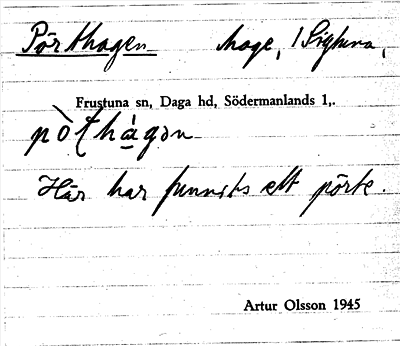 Pörthagen hage, i Sigtuna,
Frustuna sn, Daga hd, Södermanlands l,.
pò̀thàgɘn
Här har funnits ett pörte.
Artur Olsson 1945